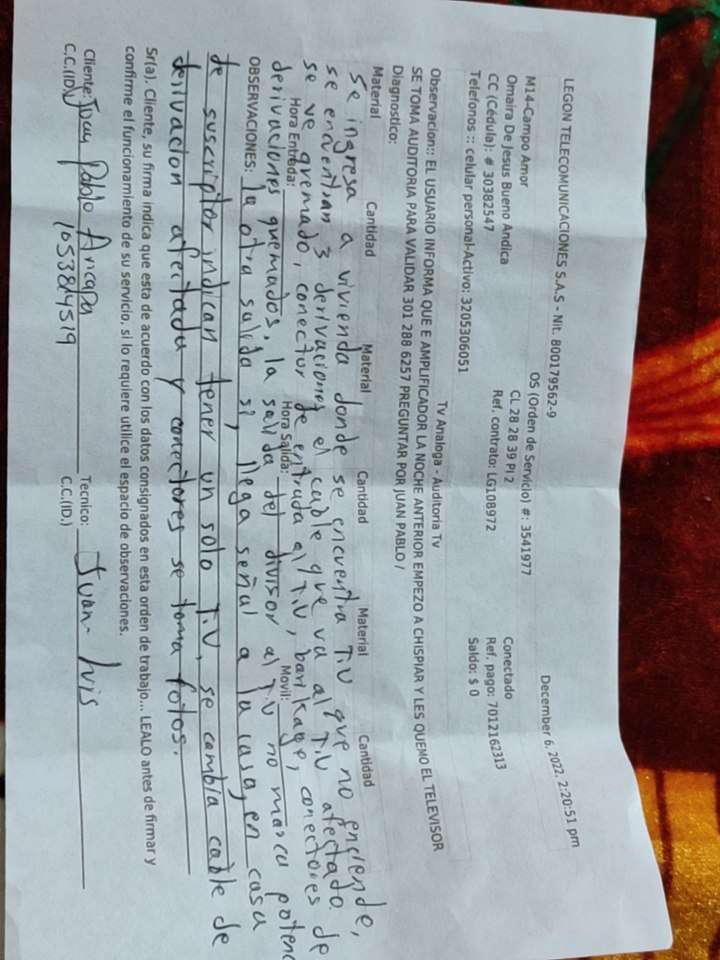 LEGON TELECOMUNICACIONES S.A.S - Nit. 800179562-9
December 6, 2022, 2:20:51 pm
M14-Campo Amor
OS (Orden de Servicio) #: 3541977
Conectado
Omaira De Jesus Bueno Andica
CL 28 28 39 PI 2
Ref. pago: 7012162313
CC (Cédula): # 30382547
Ref. contrato: LG108972
Saldo: $ 0
Telefonos :: celular personal-Activo: 3205306051
Tv Analoga - Auditoria Tv
Observacion:: EL USUARIO INFORMA QUE E AMPLIFICADOR LA NOCHE ANTERIOR EMPEZO A CHISPIAR Y LES QUEMO EL TELEVISOR
SE TOMA AUDITORIA PARA VALIDAR 301 288 6257 PREGUNTAR POR JUAN PABLO /
Diagnostico:
Material Cantidad Material Cantidad Material Cantidad
Se ingresa a vivienda donde se encuentra T.V que no enciende,
se encuentran 3 derivaciones el cable que va al T.V afectado
se ve quemado, conector de entrada al T.V, conectores de
Hora Entrada: Hora Salida: Movil:
derivaciones quemados, la salida del divisor al T.V no marca
OBSERVACIONES: la otra salida si, llega señal a la casa, en casa
de suscriptor indican tener un solo T.V, se cambia cable de
derivacion afectada y conectores se toma fotos.
Sr(a). Cliente, su firma indica que esta de acuerdo con los datos consignados en esta orden de trabajo... LEALO antes de firmar y
confirme el funcionamiento de su servicio, si lo requiere utilice el espacio de observaciones.
Cliente: Juan Pablo Aricapa Tecnico: Juan Luis
C.C.(ID.) 1053824519 C.C.(ID.)